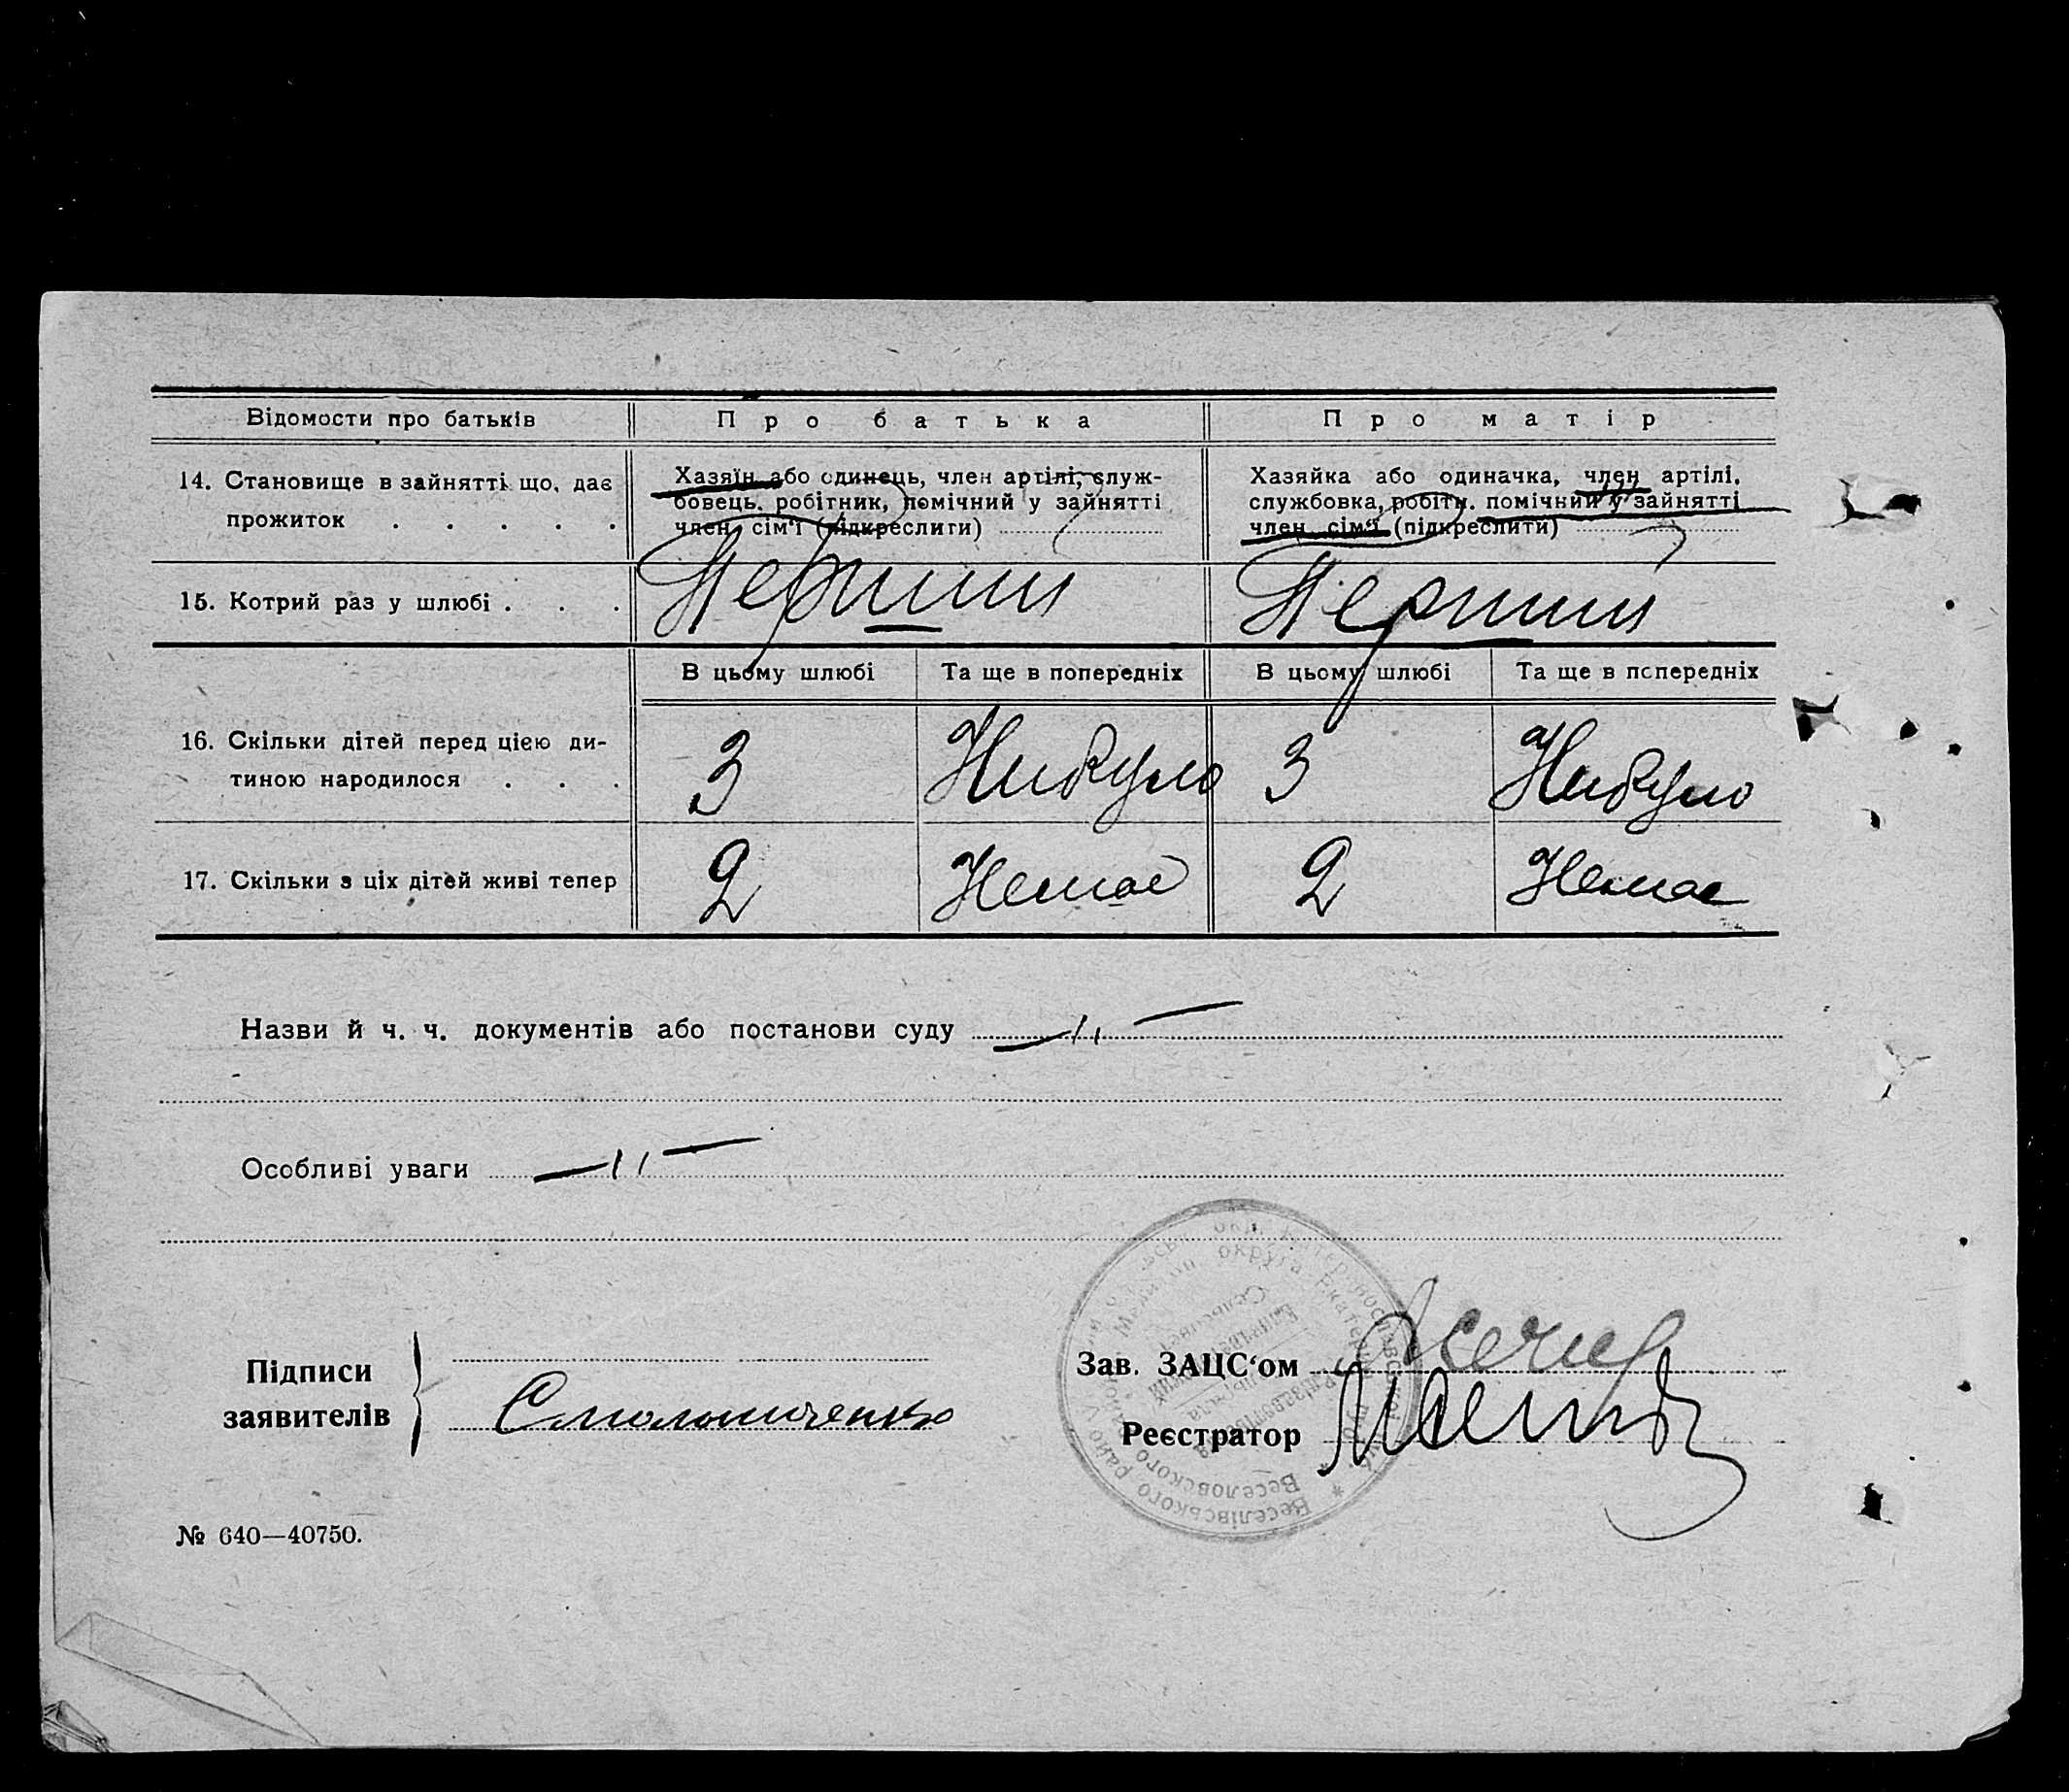 Відомости про батьків Про батька Про матір
14. Становище в зайнятті що, дає прожиток . . . . .
Хазяїн або одинець, член артілі, служ-
бовець, робітник, помічний у зайнятті
член сім'ї (підкреслити)
Хазяйка або одиначка, член артілі,
службовка, робітн. помічний у зайнятті
член сім'ї (підкреслити)
15. Котрий раз у шлюбі . . . Перший Перший
В цьому шлюбі Та ще в попередніх В цьому шлюбі Та ще в попередніх
16. Скільки дітей перед цією ди-
тиною народилося . . . 3 Нибуло 3 Нибуло
17. Скільки з ціх дітей живі тепер 2 Немає 2 Немає
Назви й ч. ч. документів або постанови суду —||—
Особливі уваги —||—
Підписи
заявителів
Зав. ЗАЦС‘ом
Реєстратор
Веселівського району
Веселовского
округа Екатерин
№ 640—40750.